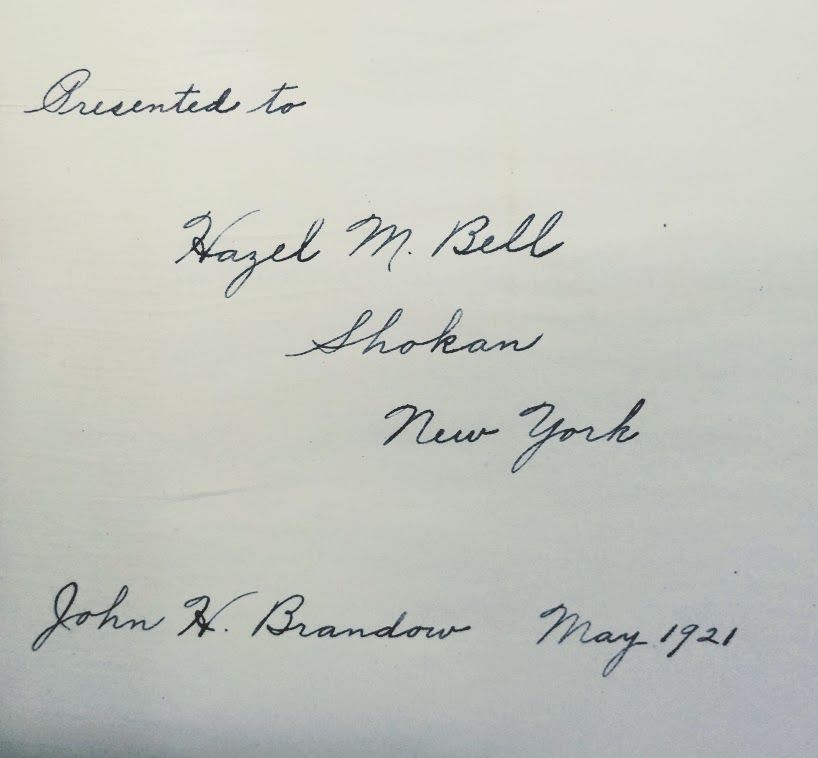 Presented to
Hazel M. Bell
Shokan
New York
John H. Brandow May 1921